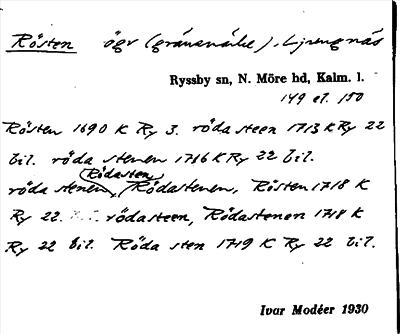 Rösten ögr (gränsmärke), Ljungnäs
Ryssby sn, N. Möre hd, Kalm. l.
149 et. 150
Rösten 1690 K Ry 3. röda steen 1713 K Ry 22
bil. röda stenen 1716 K Ry 22 bil.
(Rödasten)
röda stenen, (Rödastenen, Rösten 1718 K
Ry 22. rödasteen, Rödastenen 1718 K
Ry 22 bil. Röda sten 1719 K Ry 22 bil.
Ivar Modéer 1930